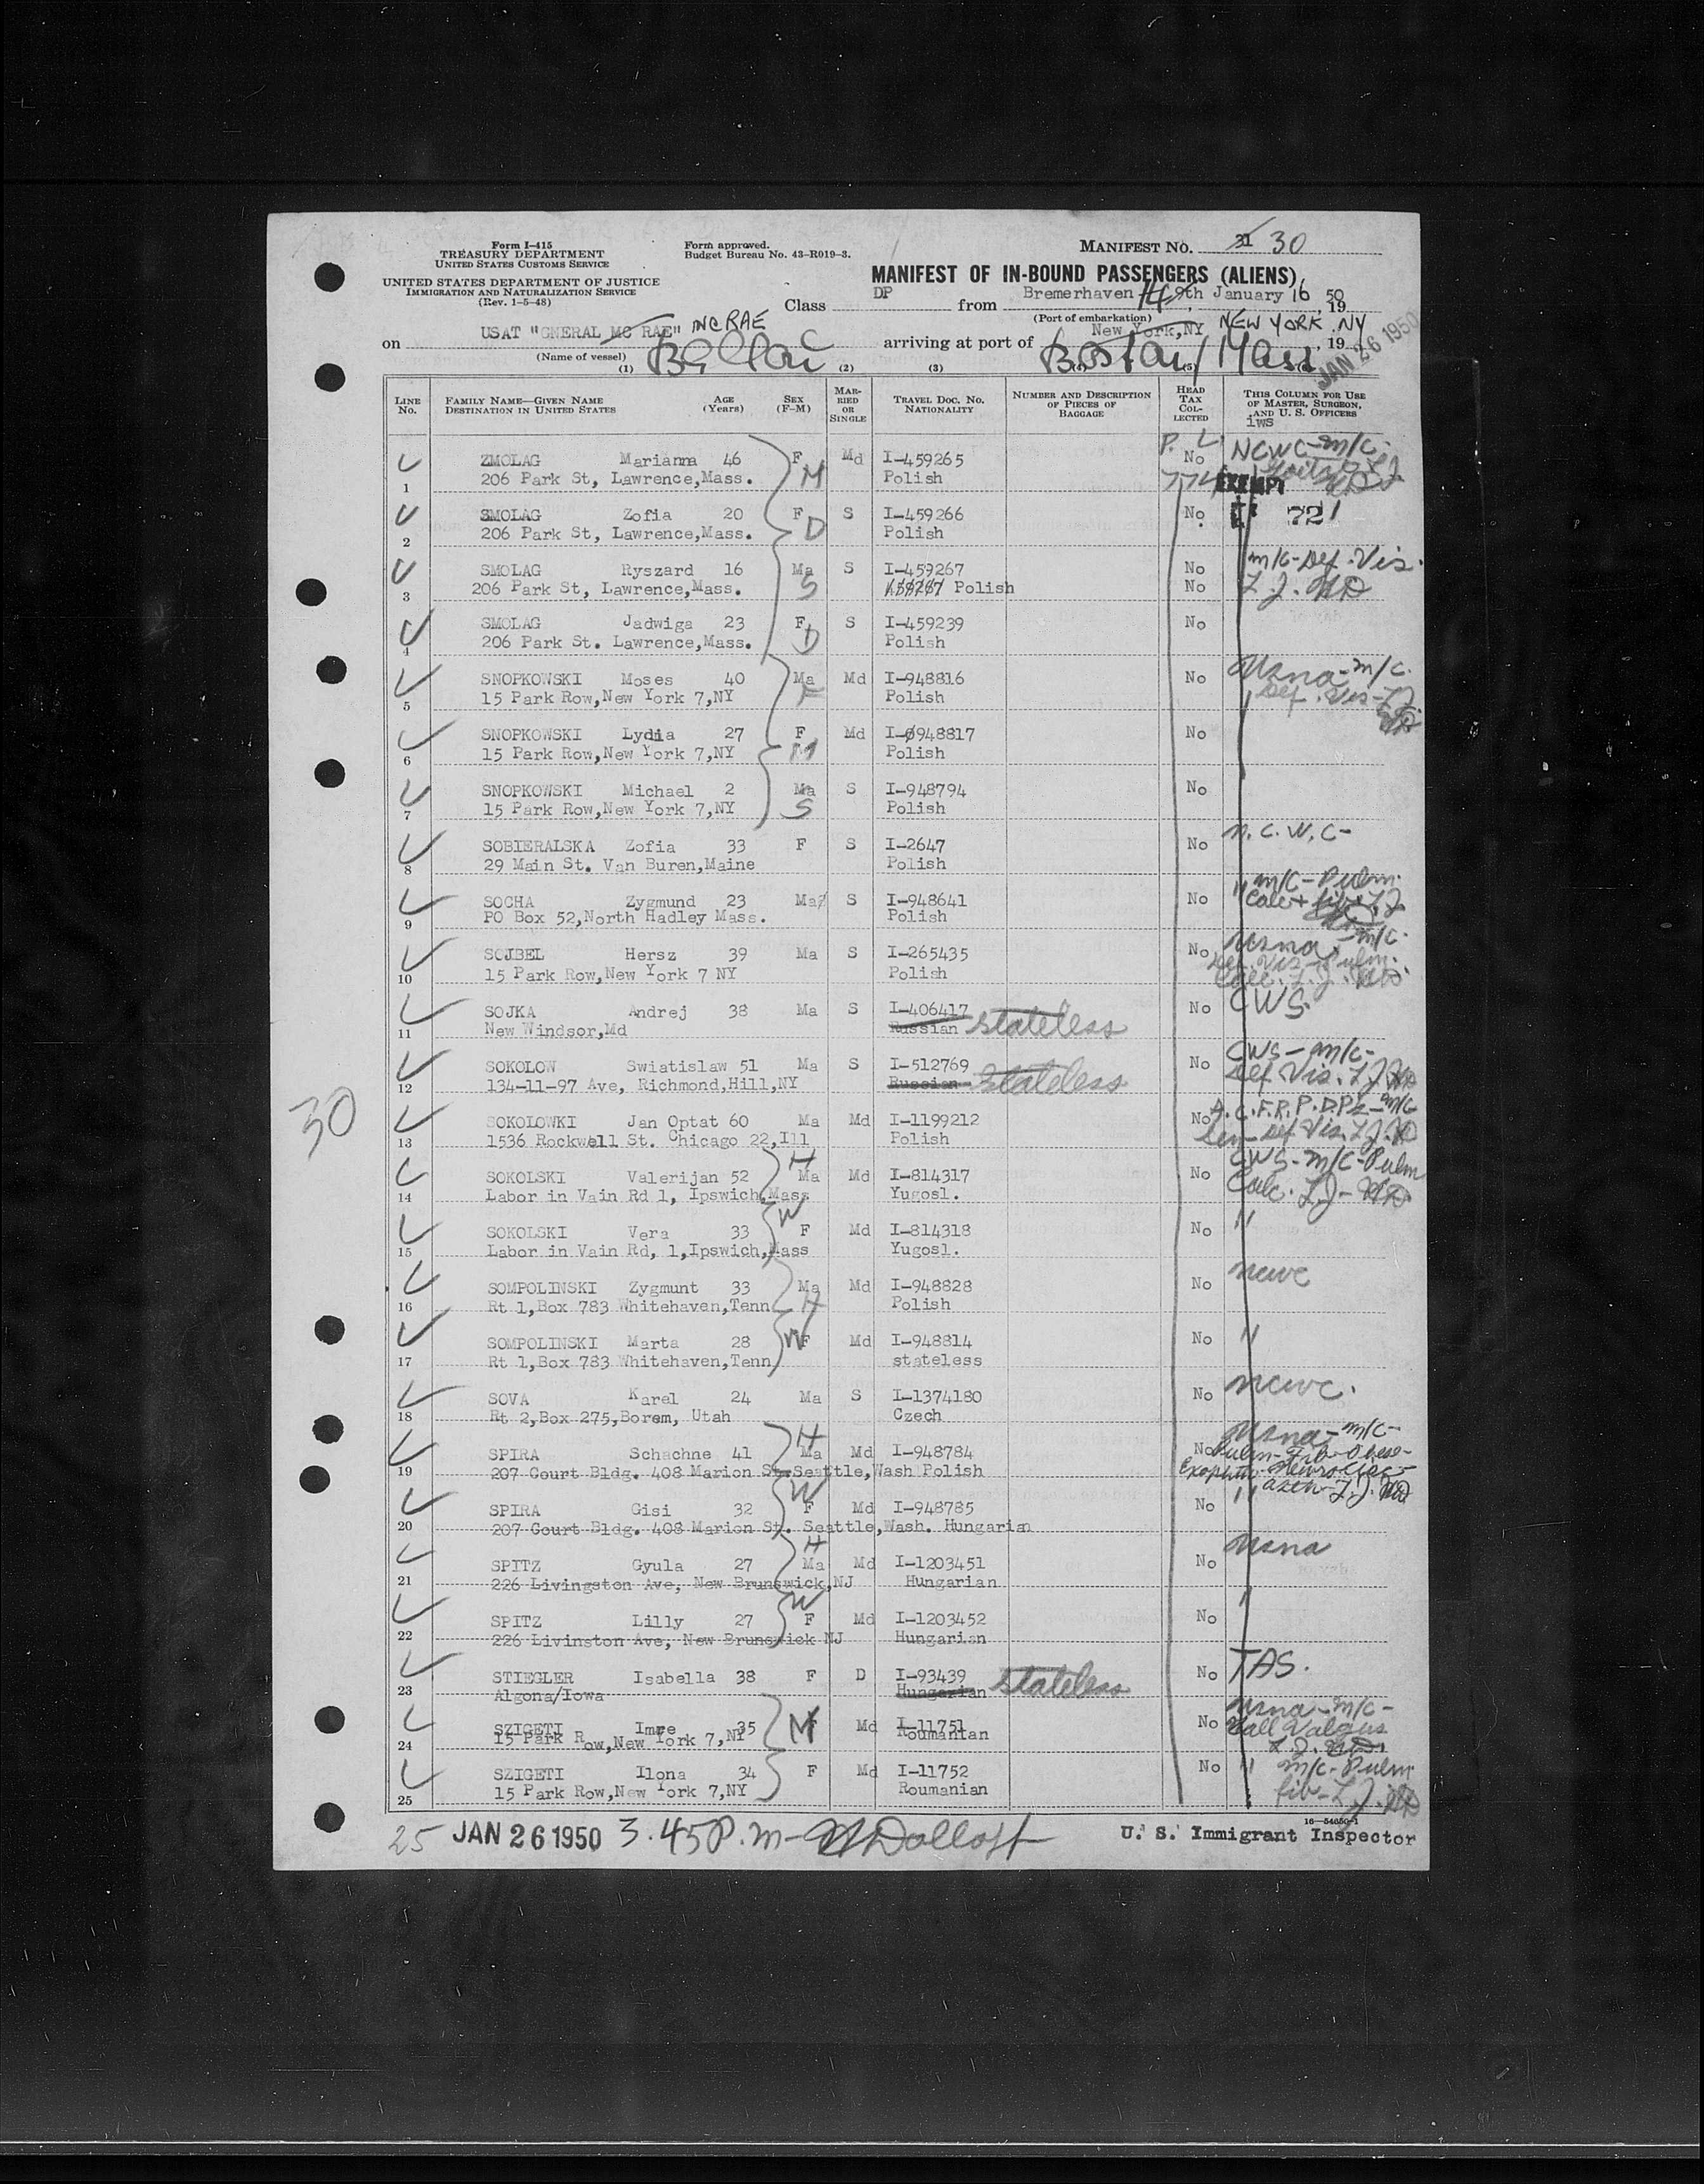 Form I-415
TREASURY DEPARTMENT
UNITED STATES CUSTOMS SERVICE
UNITED STATES DEPARTMENT OF JUSTICE
IMMIGRATION AND NATURALIZATION SERVICE
(Rev. 1-5-48)
Form approved.
Budget Bureau No. 43-R019-3.
MANIFEST NO. 31 30
MANIFEST OF IN-BOUND PASSENGERS (ALIENS)
Class DP from Bremerhaven 9th January 16 50, 19
(Port of embarkation)
on USAT "GNERAL MC RAE" McRAE arriving at port of New York,NY NEW YORK NY, 19
(Name of vessel) Boston, Mass JAN 26 1950
(1) (2) (3) (5)
LINE No. FAMILY NAME—GIVEN NAME DESTINATION IN UNITED STATES AGE (Years) SEX (F-M) MARRIED OR SINGLE TRAVEL DOC. NO. NATIONALITY NUMBER AND DESCRIPTION OF PIECES OF BAGGAGE HEAD TAX COLLECTED THIS COLUMN FOR USE OF MASTER, SURGEON, AND U. S. OFFICERS
iws
1 ZMOLAG Marianna 46 F M Md I-459265 No NCWC-m/c-
206 Park St, Lawrence,Mass. Polish EXEMPT
2 SMOLAG Zofia 20 F D S I-459266 No. 721
206 Park St, Lawrence,Mass. Polish
3 SMOLAG Ryszard 16 Ma S S I-459267 No m/c-Def.Vis.
206 Park St, Lawrence,Mass. Polish No
4 SMOLAG Jadwiga 23 F D S I-459239 No
206 Park St. Lawrence,Mass. Polish
5 SNOPKOWSKI Moses 40 Ma F Md I-948816 No usna-m/c.
15 Park Row,New York 7,NY Polish Def.Vis
6 SNOPKOWSKI Lydia 27 F M Md I-0948817 No
15 Park Row,New York 7,NY Polish
7 SNOPKOWSKI Michael 2 Ma S S I-948794 No
15 Park Row,New York 7,NY Polish
8 SOBIERALSKA Zofia 33 F S I-2647 No n.c.w.c-
29 Main St. Van Buren,Maine Polish
9 SOCHA Zygmund 23 Ma S I-948641 No " m/c-Pulm.
PO Box 52,North Hadley Mass. Polish
10 SOJBEL Hersz 39 Ma S I-265435 No usna-m/c.
15 Park Row,New York 7 NY Polish Def.Vis-Pulm.
11 SOJKA Andrej 38 Ma S I-406417 No CWS.
New Windsor,Md Russian stateless
12 SOKOLOW Swiatislaw 51 Ma S I-512769 No CWS-m/c-
134-11-97 Ave, Richmond,Hill,NY Russian stateless Def Vis.
13 SOKOLOWKI Jan Optat 60 Ma Md I-1199212 No A.C.F.R.P.D.P's-m/c
1536 Rockwell St. Chicago 22,Ill Polish
14 SOKOLSKI Valerijan 52 H Ma Md I-814317 No CWS-m/c-Pulm
Labor in Vain Rd 1, Ipswich,Mass Yugosl. Calc.
15 SOKOLSKI Vera 33 W F Md I-814318 No "
Labor in Vain Rd, 1,Ipswich,Mass Yugosl.
16 SOMPOLINSKI Zygmunt 33 Ma H Md I-948828 No ncwc
Rt 1,Box 783 Whitehaven,Tenn Polish
17 SOMPOLINSKI Marta 28 W F Md I-948814 No "
Rt 1,Box 783 Whitehaven,Tenn stateless
18 SOVA Karel 24 Ma S I-1374180 No ncwc.
Rt 2,Box 275,Borem, Utah Czech
19 SPIRA Schachne 41 H Ma Md I-948784 No usna-m/c-
207 Court Bldg. 408 Marion St.Seattle,Wash Polish
20 SPIRA Gisi 32 W F Md I-948785 No "
207 Court Bldg. 408 Marion St. Seattle,Wash. Hungarian
21 SPITZ Gyula 27 H Ma Md I-1203451 No usna
226 Livingston Ave, New Brunswick,NJ Hungarian
22 SPITZ Lilly 27 W F Md I-1203452 No "
226 Livinston Ave, New Brunswick NJ Hungarian
23 STIEGLER Isabella 38 F D I-93439 No TAS.
Algona/Iowa Hungarian stateless
24 SZIGETI Imre 35 M Md I-11751 No usna-m/c-
15 Park Row,New York 7,NY Roumanian Hall Valgus
25 SZIGETI Ilona 34 F Md I-11752 No " m/c-Pulm
15 Park Row,New York 7,NY Roumanian fib-
30
25 JAN 26 1950 3.45 P.m- U. S. Immigrant Inspector
16-54650-1